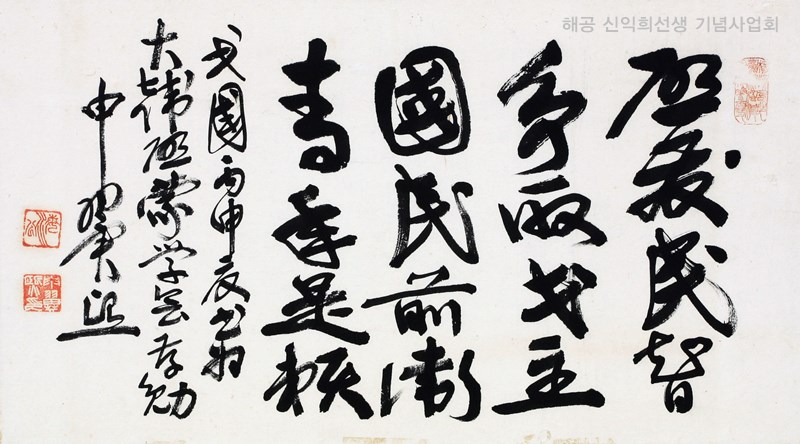 해공 신익희선생 기념사업회
啓發民智
爭取民主
國民前衛
青年是賴
民國丙申書為
大韓啓蒙学会存勉
申翼熙